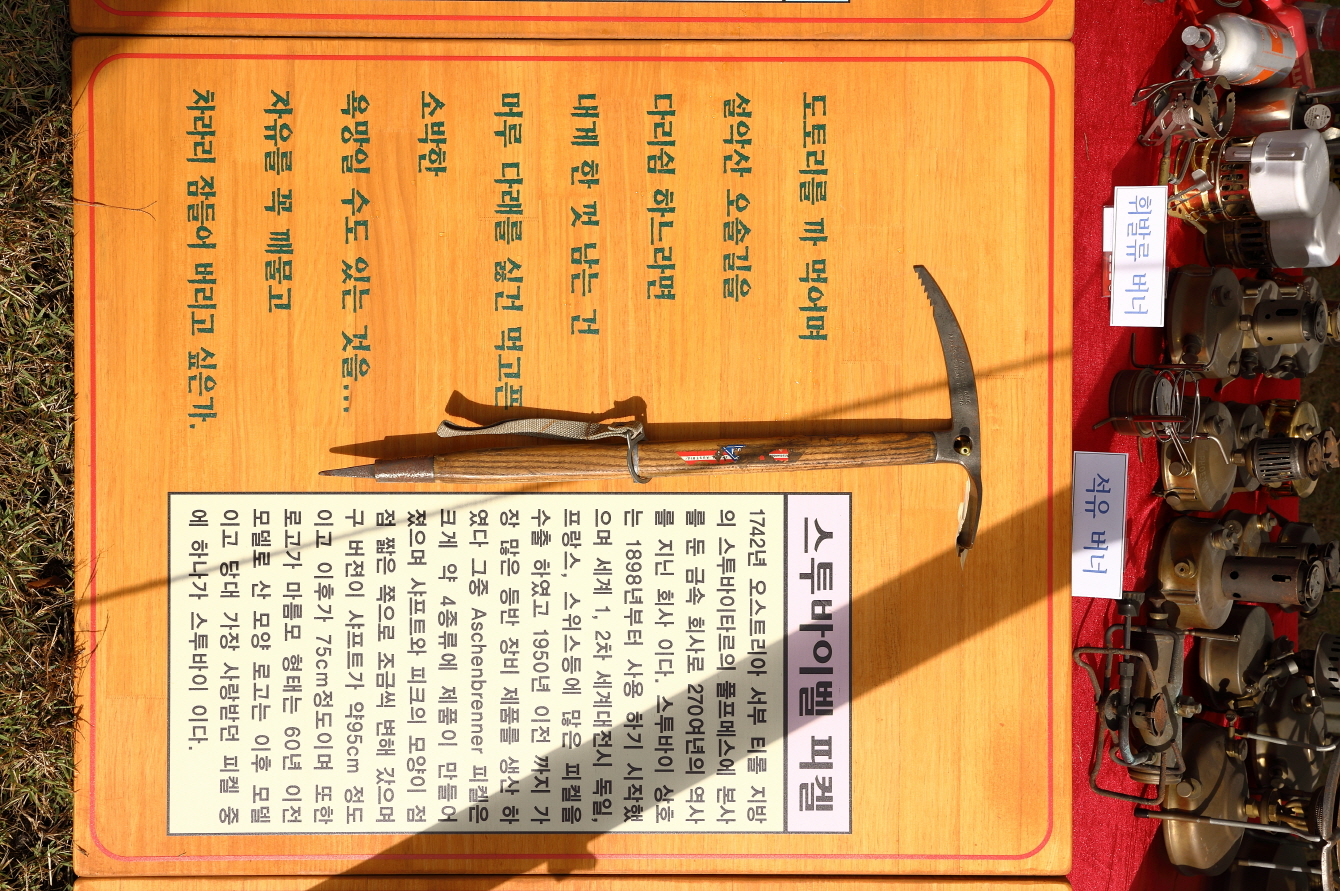 도토리를 까 먹어며
설악산 오솔길을
다리쉼 하느라면
내게 한 껏 남는 건
머루 다래를 싫건 먹고픈
소박한
욕망일 수도 있는 것을...
자유를 꼭 깨물고
차라리 잠들어 버리고 싶은가.
스투바이벨 피켈
1742년 오스트리아 서부 티롤 지방
의 스투바이타르의 풀프메스에 본사
를 둔 금속 회사로 270여년의 역사
를 지닌 회사 이다. 스투바이 상호
는 1898년부터 사용 하기 시작했
으며 세계 1, 2차 세계대전시 독일,
프랑스, 스위스등에 많은 피켈을
수출 하였고 1950년 이전 까지 가
장 많은 등반 장비 제품을 생산 하
였다 그중 Aschenbrenner 피켈은
크게 약 4종류에 제품이 만들어
졌으며 샤프트와 피크의 모양이 점
점 짧은 쪽으로 조금씩 변해 갔으며
구 버전이 샤프트가 약95cm 정도
이고 이후가 75cm정도이며 또한
로고가 마름모 형태는 60년 이전
모델로 산 모양 로고는 이후 모델
이고 당대 가장 사랑받던 피켈 중
에 하나가 스투바이 이다.
휘발류 버너
석유 버너